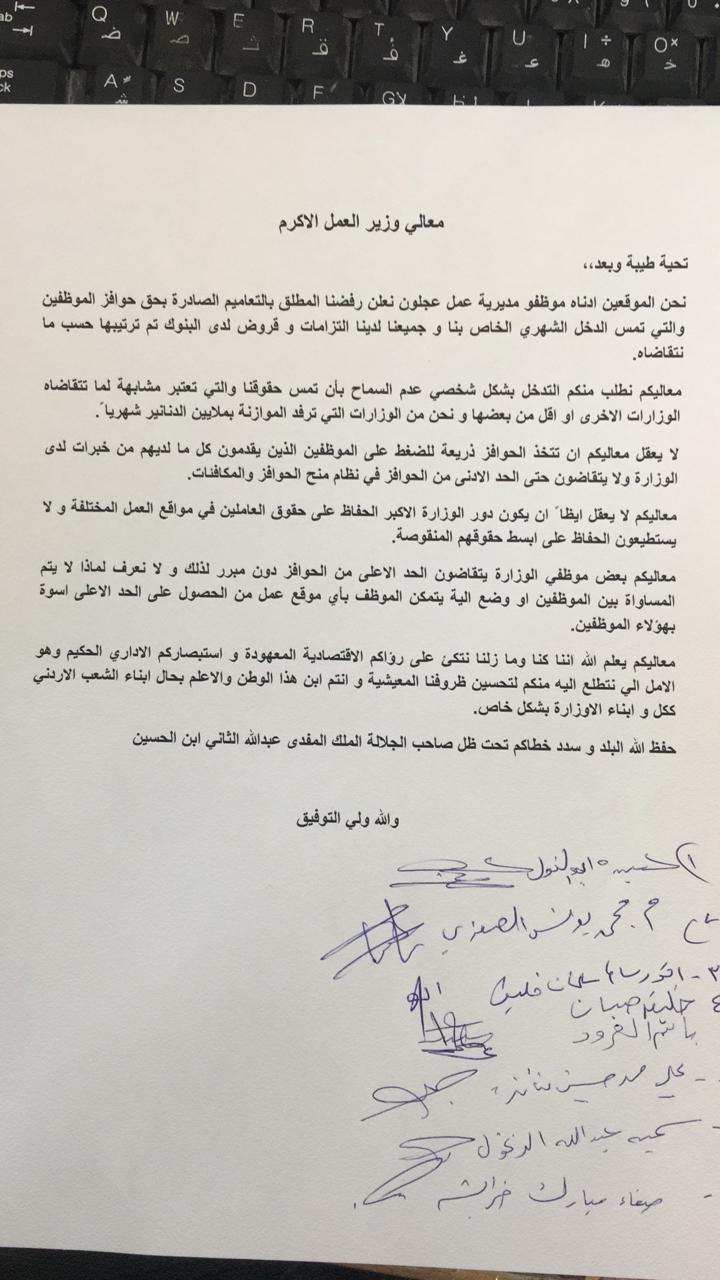 Q W E R T Y U I ÷ O ×
ض ص ث ق ف غ ع ه خ
A S D F
ش
معالي وزير العمل الاكرم
تحية طيبة وبعد،،
نحن الموقعين ادناه موظفو مديرية عمل عجلون نعلن رفضنا المطلق بالتعاميم الصادرة بحق حوافز الموظفين
والتي تمس الدخل الشهري الخاص بنا و جميعنا لدينا التزامات و قروض لدى البنوك تم ترتيبها حسب ما
نتقاضاه.
معاليكم نطلب منكم التدخل بشكل شخصي عدم السماح بأن تمس حقوقنا والتي تعتبر مشابهة لما تتقاضاه
الوزارات الاخرى او اقل من بعضها و نحن من الوزارات التي ترفد الموازنة بملايين الدنانير شهرياً.
لا يعقل معاليكم ان تتخذ الحوافز ذريعة للضغط على الموظفين الذين يقدمون كل ما لديهم من خبرات لدى
الوزارة ولا يتقاضون حتى الحد الادنى من الحوافز في نظام منح الحوافز والمكافئات.
معاليكم لا يعقل ايظاً ان يكون دور الوزارة الاكبر الحفاظ على حقوق العاملين في مواقع العمل المختلفة و لا
يستطيعون الحفاظ على ابسط حقوقهم المنقوصة.
معاليكم بعض موظفي الوزارة يتقاضون الحد الاعلى من الحوافز دون مبرر لذلك و لا نعرف لماذا لا يتم
المساواة بين الموظفين او وضع الية يتمكن الموظف بأي موقع عمل من الحصول على الحد الاعلى اسوة
بهؤلاء الموظفين.
معاليكم يعلم الله اننا كنا وما زلنا نتكئ على رؤاكم الاقتصادية المعهودة و استبصاركم الاداري الحكيم وهو
الامل الي نتطلع اليه منكم لتحسين ظروفنا المعيشية و انتم ابن هذا الوطن والاعلم بحال ابناء الشعب الاردني
ككل و ابناء الاوزارة بشكل خاص.
حفظ الله البلد و سدد خطاكم تحت ظل صاحب الجلالة الملك المفدى عبدالله الثاني ابن الحسين
والله ولي التوفيق
يونس
٣ - سلمان
باسم
علي
سميه عبدالله
صفاء مبارك خرابشه